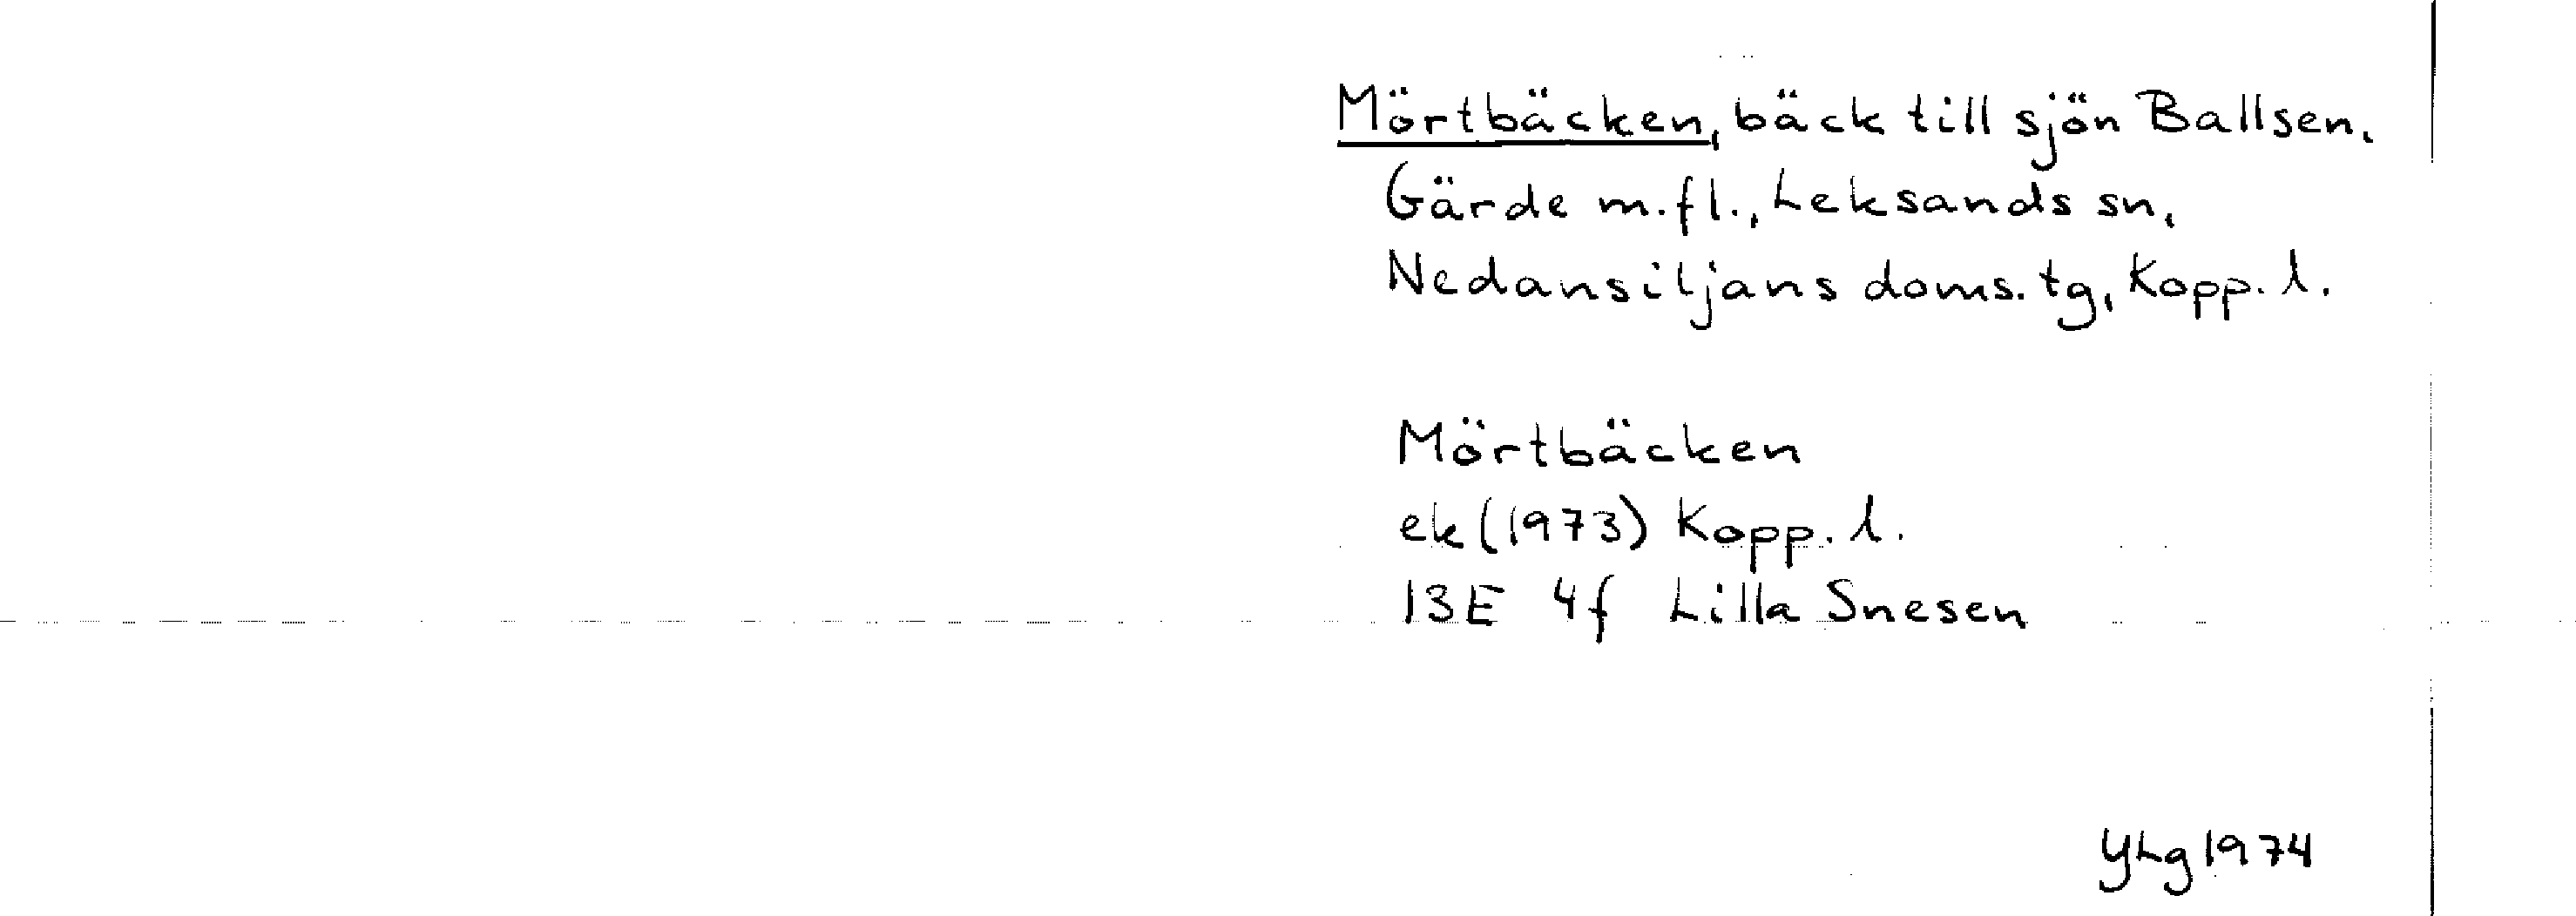 Mörtbäcken, bäck till sjön Ballsen,
Gärde m.fl., Leksands sn,
Nedansiljans doms. tg, Kopp. l.
Mörtbäcken
ek (1973) Kopp. l.
13E 4f Lilla Snesen
YLg 1974